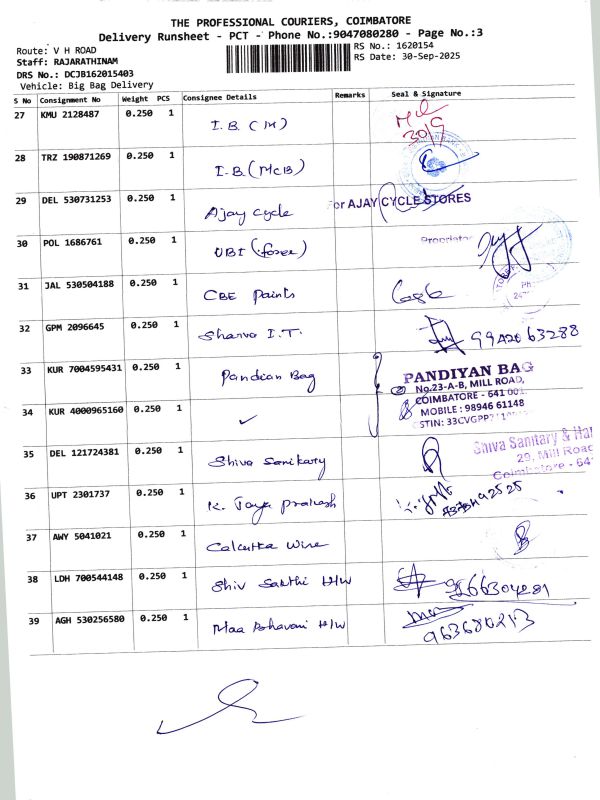 THE PROFESSIONAL COURIERS, COIMBATORE
Delivery Runsheet - PCT - Phone No.:9047080280 - Page No.:3
Route: V H ROAD
RS No.: 1620154
Staff: RAJARATHINAM
RS Date: 30-Sep-2025
DRS No.: DCJB162015403
Vehicle: Big Bag Delivery
S No Consignment No Weight PCS Consignee Details Remarks Seal & Signature
27 KMU 2128487 0.250 1 I.B.(M)
30/9
28 TRZ 190871269 0.250 1 I.B.(McB)
29 DEL 530731253 0.250 1 Ajay cycle
or AJAY CYCLE STORES
30 POL 1686761 0.250 1 UBI (forex)
Proprietor
31 JAL 530504188 0.250 1 CBE Paints
32 GPM 2096645 0.250 1 Sharva I.T.
33 KUR 7004595431 0.250 1 Pandian Bag
PANDIYAN BAG
No.23-A-B, MILL ROAD,
COIMBATORE - 641 001.
MOBILE : 98946 61148
34 KUR 4000965160 0.250 1 ✓
35 DEL 121724381 0.250 1 Shiva Sanikary
Shiva Sanitary & Ha
29, Mill Road
Coimbatore - 64
36 UPT 2301737 0.250 1 K. Jaya prakash
37 AWY 5041021 0.250 1 Calcutta Wire
38 LDH 700544148 0.250 1 Shiv Sakthi H/W
39 AGH 530256580 0.250 1 Maa Bhavani H/W